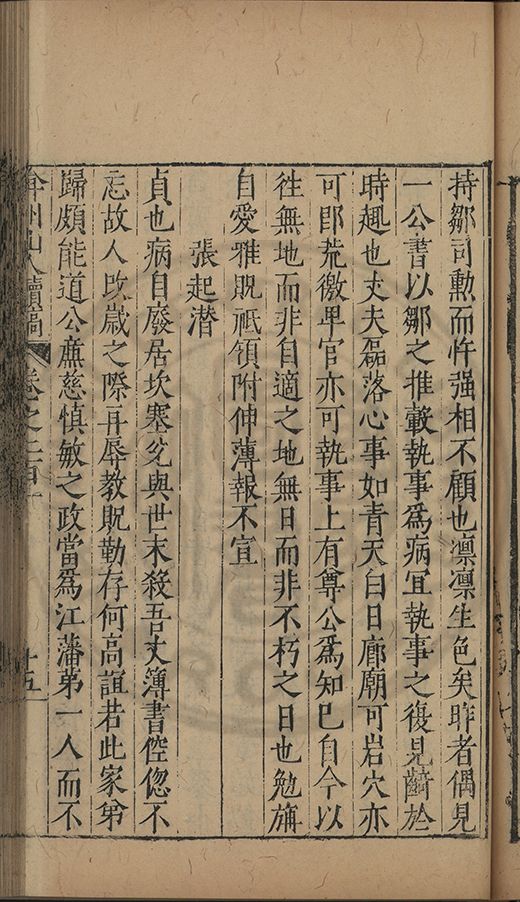 持鄒司勳而忤强相不顧也凛凛生色矣昨者偶見
一公書以鄒之推轂執事爲病宜執事之復見齮於
時趣也丈夫磊落心事如青天白日廊廟可岩穴亦
可卽荒徼卑官亦可執事上有尊公爲知巳自今以
徃無地而非自適之地無日而非不朽之日也勉旃
自愛雅貺祗領附伸薄報不宣
張起潜
貞也病自廢居坎塞兊與世末殺吾丈簿書倥偬不
忘故人改歲之際再辱敎貺勤存何高誼若此家弟
歸頗能道公廉慈慎敏之政當爲江藩第一人而不
弇州山人續稿
卷之二百十
十五